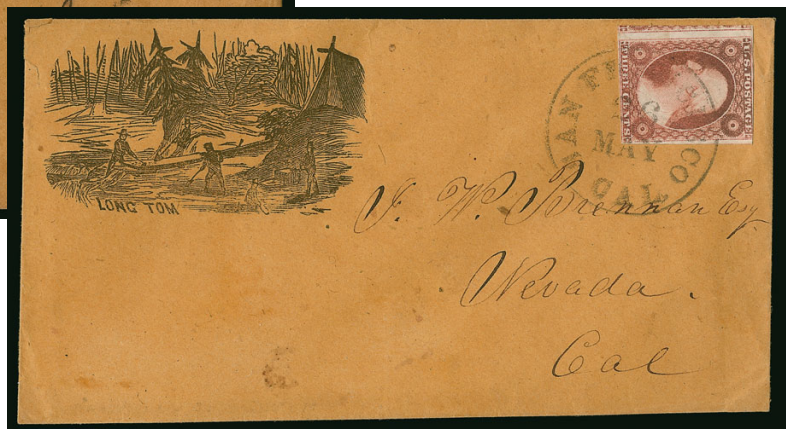 LONG TOM
U.S. POSTAGE
THREE CENTS
SAN FRANCISCO
26
MAY
CAL
J. W. Brennan Esq
Nevada.
Cal